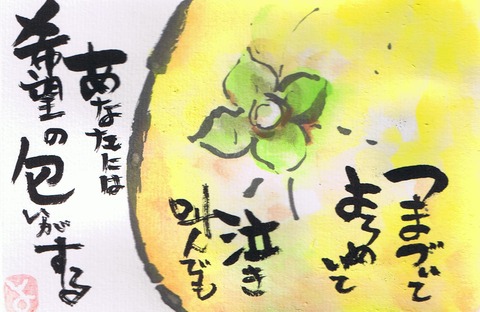 つまづいて
よろめいて
泣き
叫んでも
あなたには
希望の匂いがする